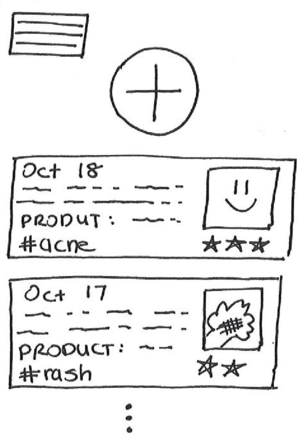 Oct 18
PRODUT:
#acne
Oct 17
PRODUCT:
#rash